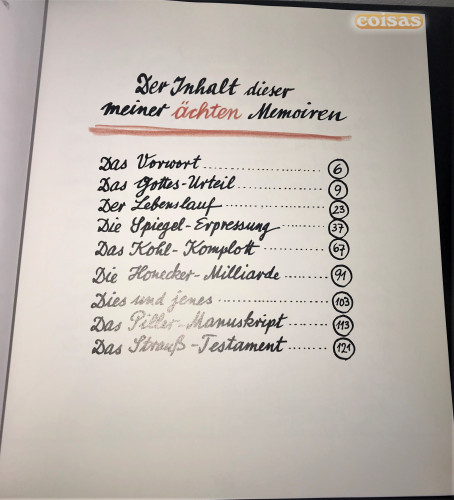 coisas
Der Inhalt dieser
meiner ächten Memoiren
Das Vorwort .................... 6
Das Gottes-Urteil .................... 9
Der Lebenslauf .................... 23
Die Spiegel-Erpressung .......... 37
Das Kohl-Komplott .............. 67
Die Honecker-Milliarde .......... 91
Dies und jenes .................... 103
Das Piller-Manuskript .......... 113
Das Strauß-Testament ........ 121